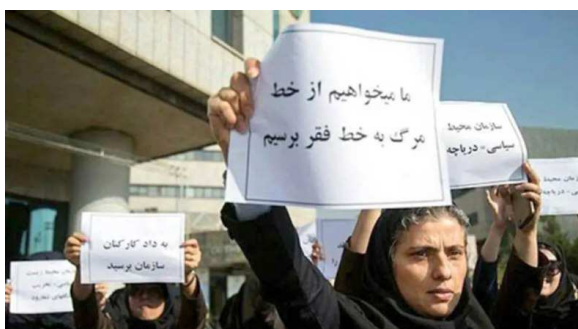 ما میخواهیم از خط
مرگ به خط فقر برسیم
سازمان محیط
سیاسی - دریاچه
به داد کارکنان
سازمان برسید
سازمان محیط زیست